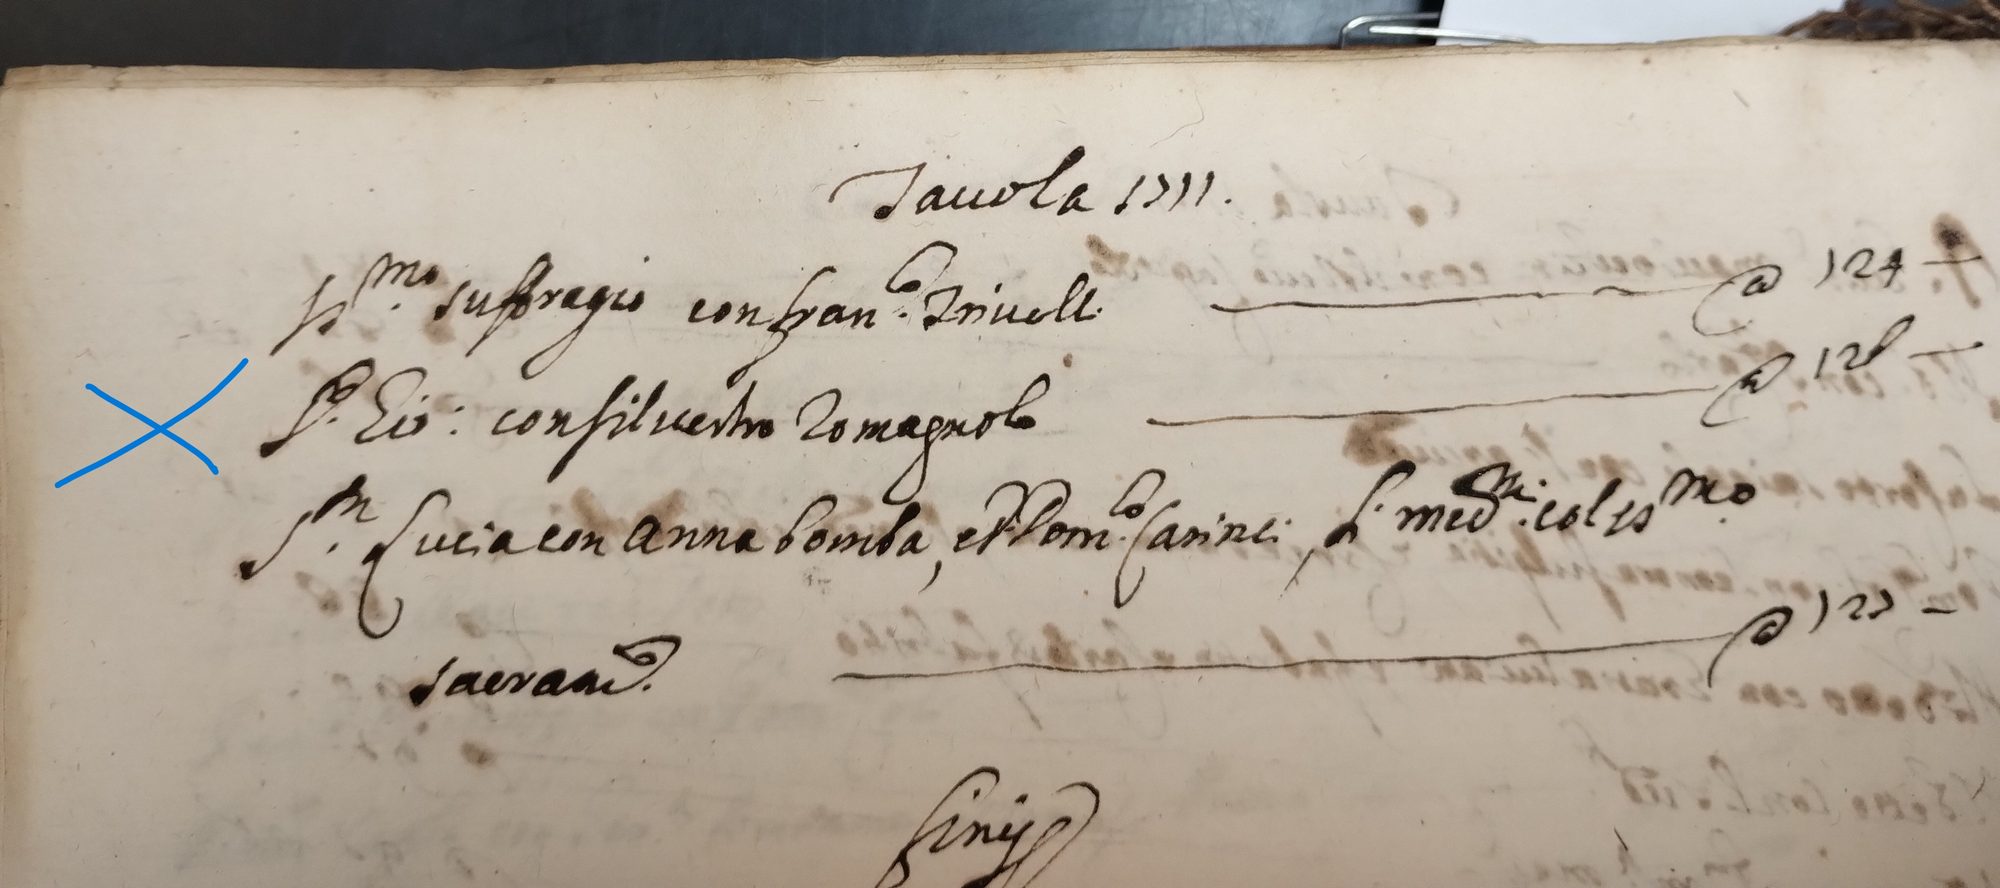 Tavola 1711.
SS.mo suffragio con fran.co Trivell. @ 124
S. Gio: con silvestro Romagnolo @ 128
S.m Lucia con Anna bomba, et Dom.co Carinci, s. med.mi col SS.mo
sacram.to @ 123
finis